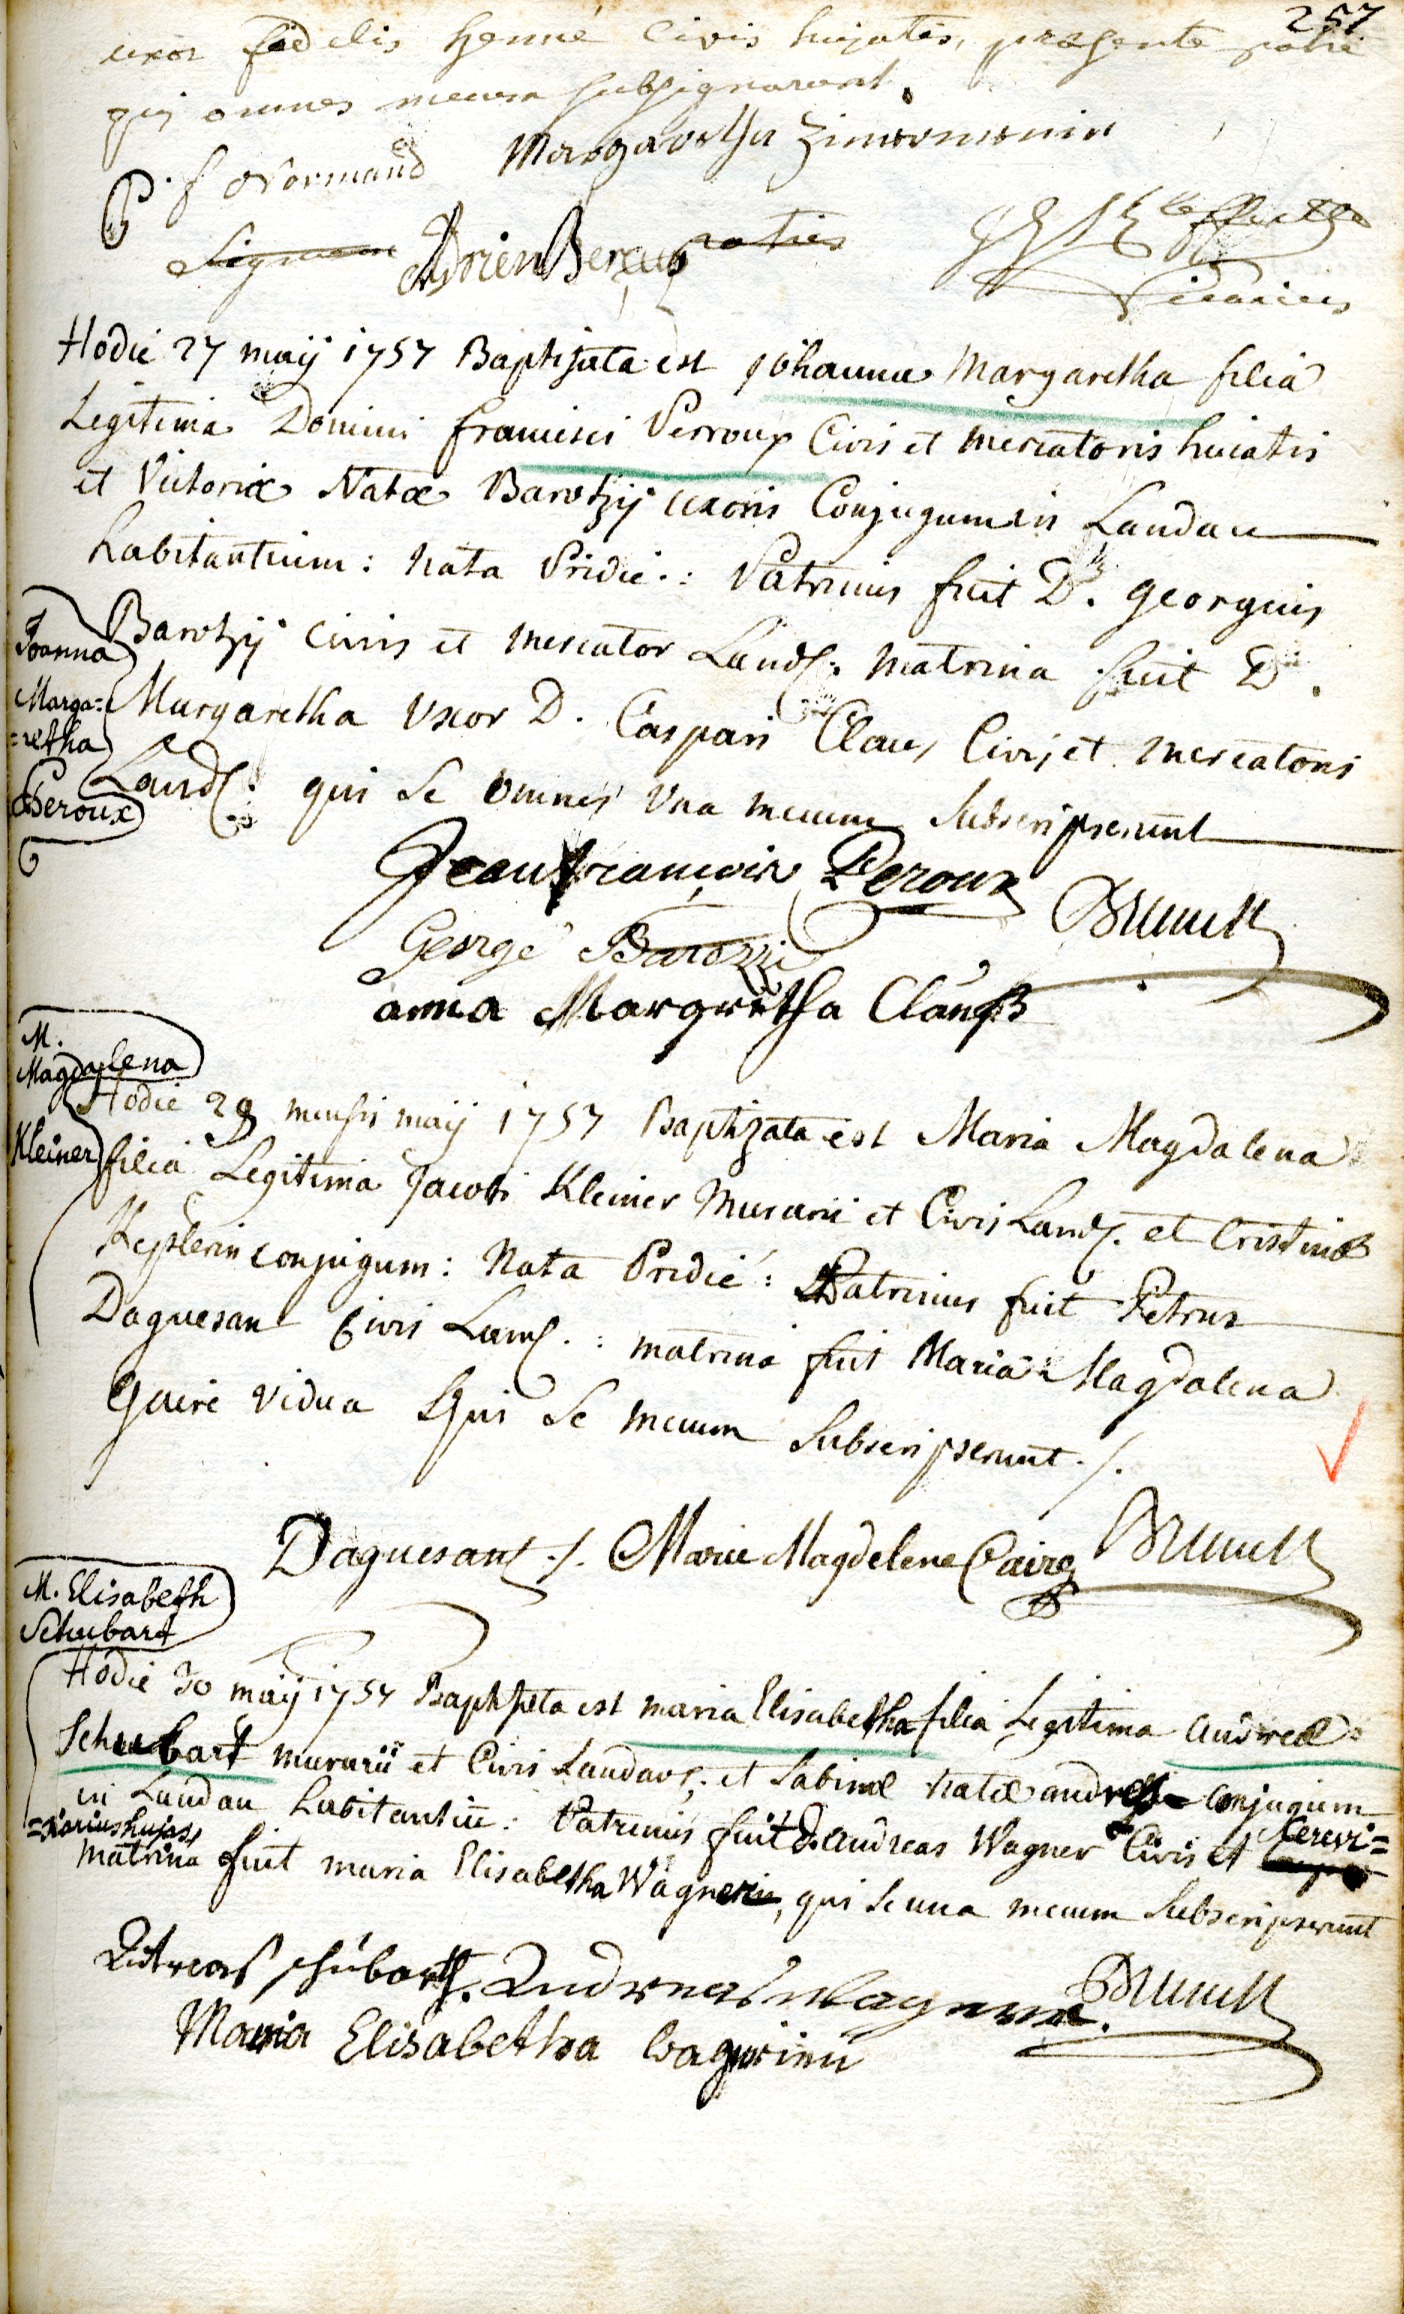 257
uxor fidelis henné Civis hujatis, præsente patre
qui omnes mecum subsignarunt.
P. f Normand Margaretha Zimermenin
Signum Adrien Bercus patris
Vicarius
Hodie 27 maij 1757 Baptizata est Johanna Margaretha filia
Legitima Domini francisci Perroux Civis et mercatoris huiatis
et Victoriæ Natæ Barotzij uxoris Conjugum in Landau
habitantium: Nata Pridie.: Patrinus fuit D. georgius
Barotzij Civis et mercator Land: matrina fuit D.
Joanna
Marga=
=retha
Peroux
Margaretha Uxor D. Caspari Claus, Civis et mercatoris
Land: qui se omnes Una mecum Subscripserunt
Jeanfrançois Peroux
Brunck
George Barozzi
anna Margretha Claußs
M.
Magdalena
Kleiner
Hodie 29 mensis maij 1757 Baptizata est Maria Magdalena
filia Legitima Jacobi Kleiner Murarii et Civis Land. et Cristinæ
Keplerin conjugum: Nata Pridie: Patrinus fuit Petrus
Daguesant Civis Land.: matrina fuit Maria Magdalena
Guire Vidua Qui Se mecum Subscripserunt./.
Daguesant ./. Marie Magdelene Caire Brunck
M. Elisabeth
Schubart
Hodie 30 maij 1757 Baptizata est maria Elisabetha filia Legitima andreæ
Schubart murarii et Civis Landav; et Sabinæ natæ conjugum
in Landau habitantiu: Patrinus fuit D. andreas Wagner Civis et Cerevi=
=siarius hujas,
matrina fuit maria Elisabetha Wagnerin, qui se una mecum Subscripserunt
Andreas schubarth. Andreas Wagner. Brunck
Maria Elisabetha Wagnerinn